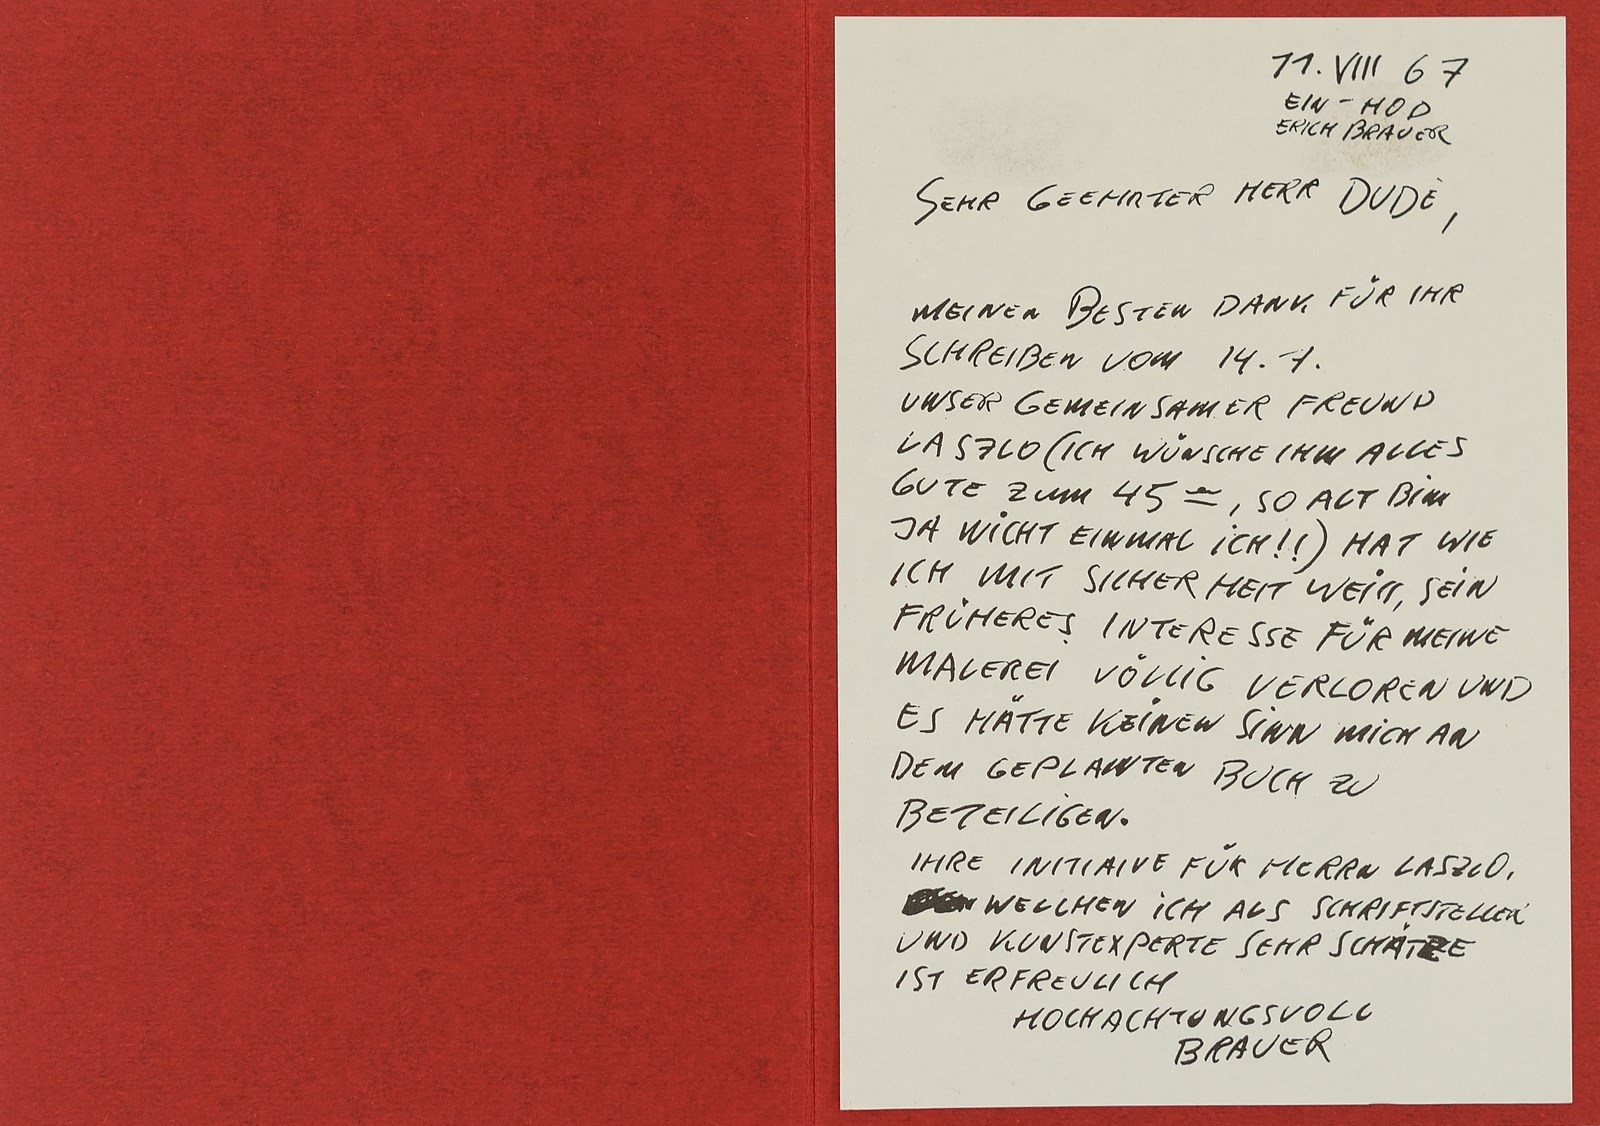 11. VIII 67
EIN-HOD
ERICH BRAUER
SEHR GEEHRTER HERR DUDÉ,
MEINEN BESTEN DANK FÜR IHR
SCHREIBEN VOM 14.7.
UNSER GEMEINSAMER FREUND
LASZLO (ICH WÜNSCHE IHM ALLES
GUTE ZUM 45, SO ALT BIN
JA NICHT EINMAL ICH!!) HAT WIE
ICH MIT SICHERHEIT WEISS, SEIN
FRÜHERES INTERESSE FÜR MEINE
MALEREI VÖLLIG VERLOREN UND
ES HÄTTE KEINEN SINN MICH AN
DEM GEPLANTEN BUCH ZU
BETEILIGEN.
IHRE INITIAIVE FÜR HERRN LASZLO,
WELLCHEN ICH ALS SCHRIFTSTELLER
UND KUNSTEXPERTE SEHR SCHÄTZE
IST ERFREULICH
HOCHACHTUNGSVOLL
BRAUER